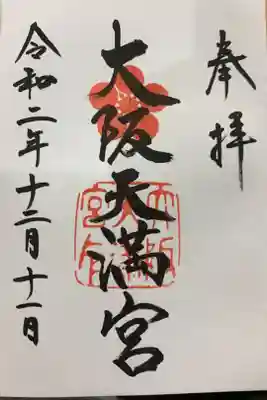 奉拝
大阪天満宮
令和二年十二月十一日